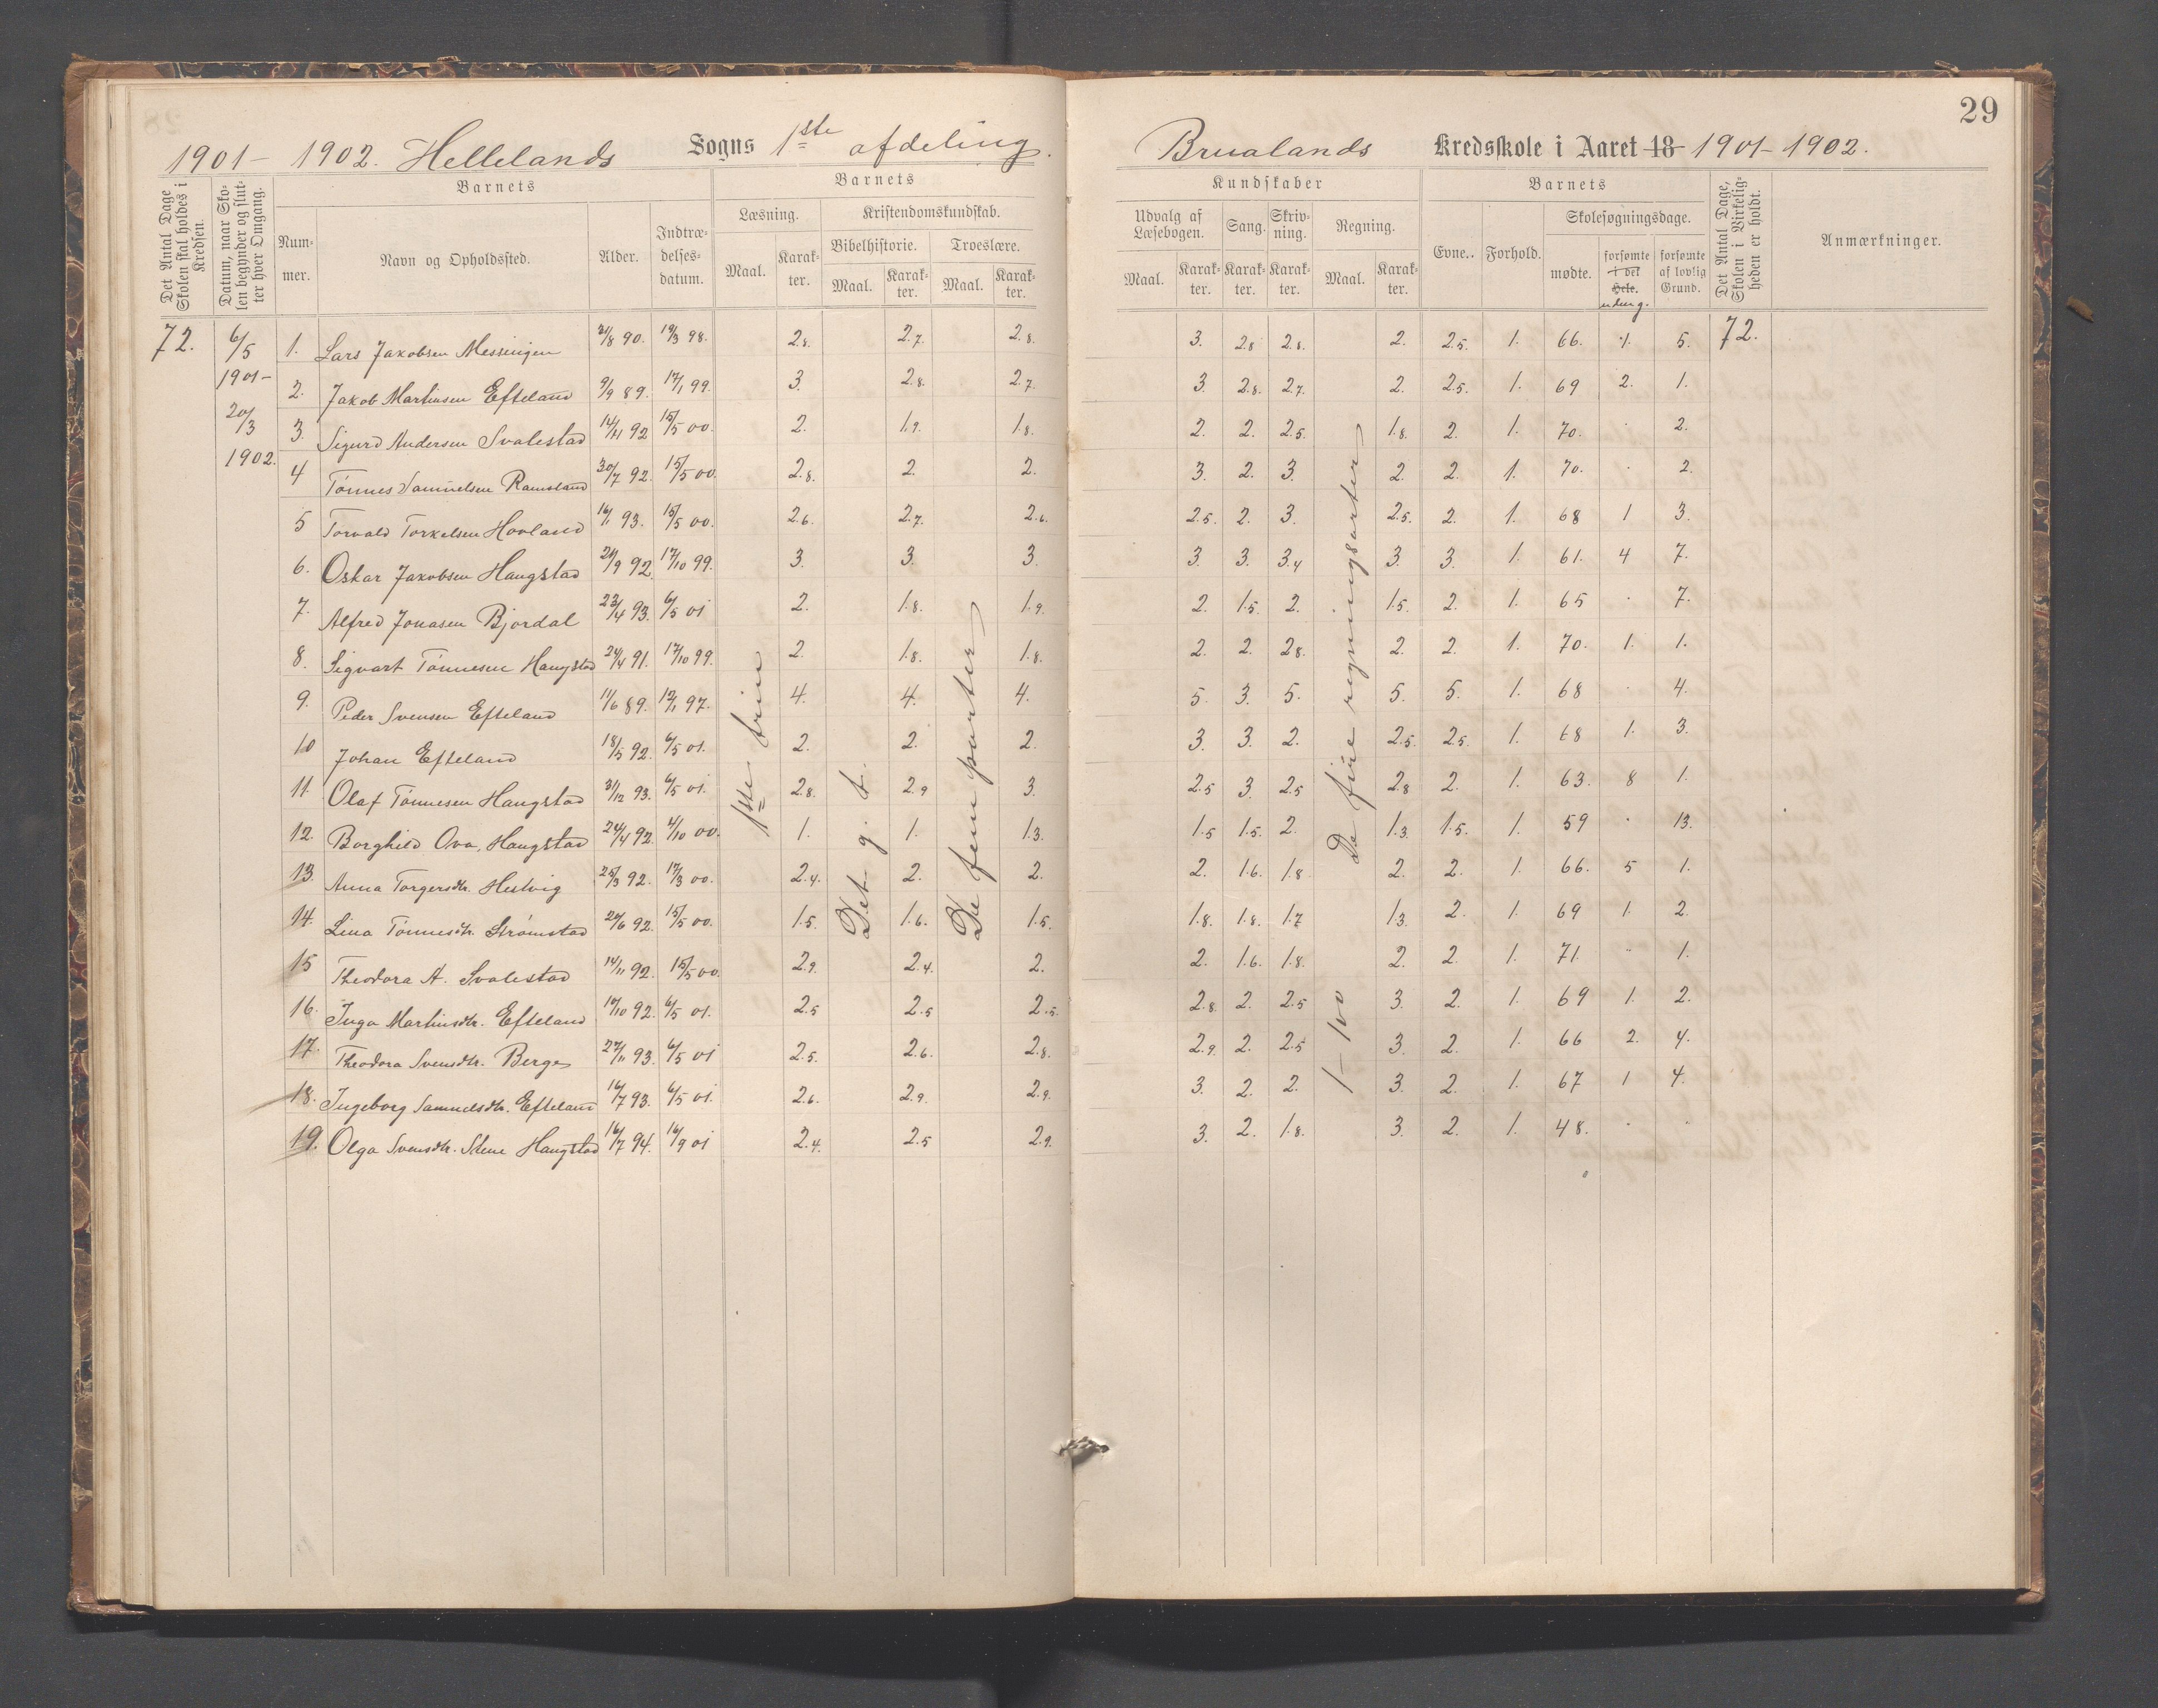 29
1901 – 1902. Hellelands Sogns 1ste afdeling.
Brualands Kredsskole i Aaret 18 1901 – 1902.
Det Antal Dage Skolen skal holdes i Kredsen.
Datum, naar Skolen begynder og slutter hver Omgang.
Barnets
Nummer.
Navn og Opholdssted.
Alder.
Indtrædelsesdatum.
Barnets
Læsning.
Maal.
Karakter.
Kristendomskundskab.
Bibelhistorie.
Maal.
Karakter.
Troeslære.
Maal.
Karakter.
Kundskaber
Udvalg af Læsebogen.
Maal.
Karakter.
Sang.
Karakter.
Skrivning.
Karakter.
Regning.
Maal.
Karakter.
Barnets
Evne.
Forhold.
Skolesøgningsdage.
mødte.
forsømte i det Hele.
forsømte af lovlig Grund.
Det Antal Dage, Skolen i Virkeligheden er holdt.
Anmærkninger.
72. 6/5 1901 – 20/3 1902.
1ste trin
Det g. t.
De fem parter
De fire regningsarter
1 – 100
1. Lars Jakobsen Messingen 21/8 90. 19/3 98. 2.8. 2.7. 2.8. 3. 2.8 2.8. 2. 2.5. 1. 66. 1. 5. 72.
2. Jakob Martinsen Efteland 9/9 89. 17/1 99. 3. 2.8. 2.7. 3 2.8. 2.7. 2. 2.5. 1. 69 2. 1.
3. Sigurd Andersen Svalestad 14/11 92 15/5 00. 2. 1.9. 1.8. 2. 2. 2.5. 1.8. 2. 1. 70. . 2.
4 Tønnes Samuelsen Ramsland 30/7 92. 15/5 00. 2.8. 2. 2. 3. 2. 3. 2 2. 1. 70. . 2.
5 Torvald Torkelsen Hovland 16/1 93. 15/5 00. 2.6. 2.7. 2.6. 2.5. 2. 3. 2.5. 2. 1. 68 1 3.
6. Oskar Jakobsen Haugstad 21/9 92. 17/10 99. 3. 3. 3. 3. 3. 3.4 3. 3. 1. 61. 4 7.
7. Alfred Jonasen Bjordal 23/4 93. 6/5 01 2. 1.8. 1.9. 2. 1.5. 2. 1.5. 2. 1. 65 . 7.
8. Sigvart Tønnesen Haugstad 24/4 91. 17/10 99. 2. 1.8. 1.8. 2. 2. 2.8. 2. 2. 1. 70. 1. 1.
9. Peder Svensen Efteland 11/6 89. 12/1 97. 4. 4. 4. 5. 3. 5. 5. 5. 1. 68 . 4.
10 Johan Efteland 18/5 92. 6/5 01. 2. 2. 2. 3. 3. 2. 2.5. 2.5. 1. 68 1. 3.
11. Olaf Tønnesen Haugstad 31/12 93. 6/5 01. 2.8. 2.9 3. 2.5 3. 2.5 2.8 2. 1. 63. 8 1.
12. Borghild Ova, Haugstad 24/4 92. 4/10 00. 1. 1. 1.3. 1.5 1.5. 2. 1.3. 1.5. 1. 59 . 13.
13. Anna Torgersdtr. Hestvig 25/3 92. 17/3 00. 2.4. 2. 2. 2. 1.6. 1.8 2. 2. 1. 66. 5 1.
14. Lina Tønnesdtr. Strømstad 24/6 92. 15/5 00. 1.5. 1.6. 1.5. 1.8. 1.8. 1.7 1.3. 2. 1. 69 1. 2.
15 Theodora A. Svalestad 14/11 92. 15/5 00. 2.9. 2.4. 2. 2. 1.6. 1.8. 2. 2. 1. 71. .. 1.
16. Inga Martinsdtr. Efteland 19/10 92. 6/5 01. 2.5 2.5 2.5. 2.8. 2. 2.5 3. 2. 1. 69 1. 2.
17. Theodora Svensdtr. Berge 27/11 93. 6/5 01 2.5. 2.6. 2.8. 2.9. 2. 2.5 3. 2. 1. 66 2. 4.
18. Ingeborg Samuelsdtr. Efteland 16/7 93. 6/5 01. 2.6. 2.9. 2.9. 3. 2. 2. 3. 2. 1. 67 1 4.
19. Olga Svensdtr. Stene Haugstad 16/7 94. 16/9 01 2.4. 2.5 2.9. 3. 2. 1.8. 3. 2. 1. 48. . .